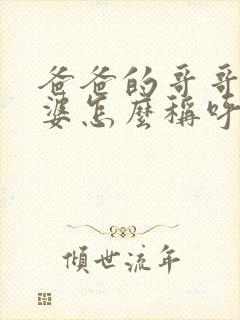 爸爸的哥哥
婆怎麼稱呼
傾世流年